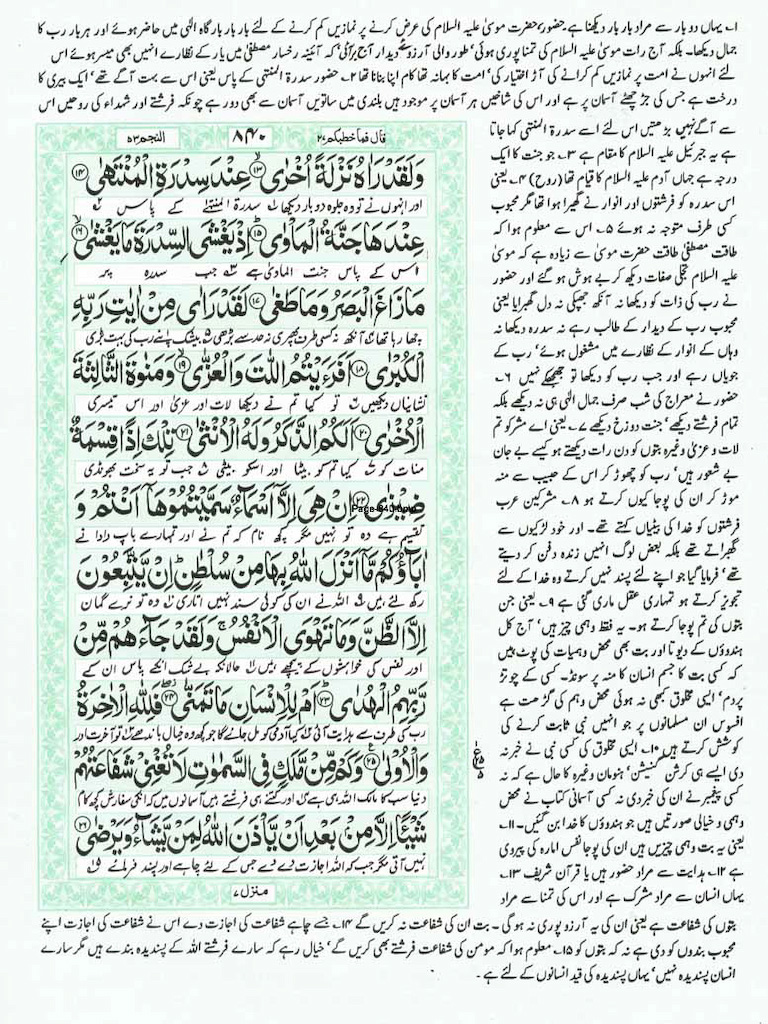 ۱۔ یہاں دو بار سے مراد بار بار دیکھنا ہے، حضور حضرت موسیٰ علیہ السلام کی عرض کرنے پر نمازیں کم کرنے کے لئے بار بار بارگاہ الٰہی میں حاضر ہوئے اور ہر بار رب کا
جمال دیکھا۔ بلکہ آج رات موسیٰ علیہ السلام کی تمنا پوری ہوئی' طور والی آرزوئے دیدار آج بر آئی' کہ آئینہ رخسار مصطفیٰ میں یار کے نظارے انہیں بھی میسر ہوئے اس
لئے انہوں نے امت پر نمازیں کم کرانے کی آڑ اختیار کی' امت کا بہانہ تھا کام اپنا بنانا تھا ۲۔ حضور سدرۃ المنتہیٰ کے پاس یعنی اس سے بہت آگے تھے' ایک بیری کا
درخت ہے جس کی جڑ چھٹے آسمان پر ہے اور اس کی شاخیں ہر آسمان پر موجود ہیں بلندی میں ساتویں آسمان سے بھی دور ہے چونکہ فرشتے اور شہداء کی روحیں اس
سے آگے نہیں بڑھتیں اس لئے اسے سدرۃ المنتہیٰ کہا جاتا
ہے یہ جبرئیل علیہ السلام کا مقام ہے ۳۔ جو جنت کا ایک
درجہ ہے جہاں آدم علیہ السلام کا قیام تھا (روح) ۴۔ یعنی
اس سدرہ کو فرشتوں اور انوار نے گھیرا ہوا تھا مگر محبوب
کسی طرف متوجہ نہ ہوئے ۵۔ اس سے معلوم ہوا کہ
طاقت مصطفیٰ طاقت حضرت موسیٰ سے زیادہ ہے کہ موسیٰ
علیہ السلام تجلی صفات دیکھ کر بے ہوش ہو گئے اور حضور
نے رب کی ذات کو دیکھا نہ آنکھ جھپکی نہ دل گھبرایا یعنی
محبوب رب کے دیدار کے طالب رہے نہ سدرہ دیکھا نہ
وہاں کے انوار کے نظارے میں مشغول ہوئے' رب کے
جویاں رہے اور جب رب کو دیکھا تو جھجھکے نہیں ۶۔
حضور نے معراج کی شب صرف جمال الٰہی ہی نہ دیکھے بلکہ
تمام فرشتے دیکھے' جنت دوزخ دیکھے ۷۔ یعنی اے مشرکو تم
لات و عزیٰ وغیرہ بتوں کو دن رات دیکھتے ہو کیسے بے جان
بے شعور ہیں' رب کو چھوڑ کر اس کے حبیب سے منہ
موڑ کر ان کی پوجا کیوں کرتے ہو ۸۔ مشرکین عرب
فرشتوں کو خدا کی بیٹیاں کہتے تھے۔ اور خود لڑکیوں سے
گھبراتے تھے بلکہ بعض لوگ انہیں زندہ دفن کر دیتے
تھے' فرمایا گیا جو اپنے لئے پسند نہیں کرتے وہ خدا کے لئے
تجویز کرتے ہو تمہاری عقل ماری گئی ہے ۹۔ یعنی جن
بتوں کی تم پوجا کرتے ہو۔ یہ فقط وہمی چیز ہیں' آج کل
ہندوؤں کے دیوتا اور بت بھی محض وہمیات کی پوٹ ہیں
کہ کسی بت کا جسم انسان کا منہ پر سونڈ۔ کسی کے چوتڑ
پر دم' ایسی مخلوق کبھی نہ ہوئی محض وہم کی گڑھت ہے
افسوس ان مسلمانوں پر جو انہیں نبی ثابت کرنے کی
کوشش کرتے ہیں ۱۰۔ ایسی مخلوق کی کسی نبی نے خبر نہ
دی ایسے ہی کرشن' کنیشن' ہنومان وغیرہ کا حال ہے کہ نہ
کسی پیغمبر نے ان کی خبر دی نہ کسی آسمانی کتاب نے محض
وہمی و خیالی صورتیں ہیں جو ہندوؤں کا خدا بن گئیں۔ ۱۱۔
یعنی یہ بت وہمی چیزیں ہیں ان کی پوجا نفس امارہ کی پیروی
ہے ۱۲۔ ہدایت سے مراد حضور ہیں یا قرآن شریف ۱۳۔
یہاں انسان سے مراد مشرک ہے اور اس کی تمنا سے مراد
قال فما خطبکم ۲۷
۸۴۰
النجم ۵۳
وَلَقَدْ رَاٰهُ نَزْلَةً اُخْرٰى ۱۳ عِنْدَ سِدْرَةِ الْمُنْتَهٰى ۱۴
اور انہوں نے تو وہ جلوہ دو بار دیکھا سدرۃ المنتہیٰ کے پاس
عِنْدَهَا جَنَّةُ الْمَاْوٰى ۱۵ اِذْ يَغْشَى السِّدْرَةَ مَا يَغْشٰى ۱۶
اس کے پاس جنت الماویٰ ہے جب سدرہ پر
مَا زَاغَ الْبَصَرُ وَمَا طَغٰى ۱۷ لَقَدْ رَاٰى مِنْ اٰيٰتِ رَبِّهِ
چھا رہا تھا آنکھ نہ کسی طرف پھیری نہ حد سے بڑھی بیشک اپنے رب کی بہت بڑی
الْكُبْرٰى ۱۸ اَفَرَءَيْتُمُ اللّٰتَ وَالْعُزّٰى ۱۹ وَمَنٰوةَ الثَّالِثَةَ
نشانیاں دیکھیں تو کیا تم نے دیکھا لات اور عزیٰ اور اس تیسری
الْاُخْرٰى ۲۰ اَلَكُمُ الذَّكَرُ وَلَهُ الْاُنْثٰى ۲۱ تِلْكَ اِذًا قِسْمَةٌ
منات کو کیا تم کو بیٹا اور اسکو بیٹی جب تو یہ سخت بھونڈی
ضِيْزٰى ۲۲ اِنْ هِىَ اِلَّا اَسْمَآءٌ سَمَّيْتُمُوْهَا اَنْتُمْ وَ
Page-840.bmp
تقسیم ہے وہ تو نہیں مگر کچھ نام کہ تم نے اور تمہارے باپ دادا نے
اٰبَآؤُكُمْ مَّا اَنْزَلَ اللّٰهُ بِهَا مِنْ سُلْطٰنٍ اِنْ يَّتَّبِعُوْنَ
رکھ لئے ہیں اللہ نے ان کی کوئی سند نہیں اتاری وہ تو نرے گمان
اِلَّا الظَّنَّ وَمَا تَهْوَى الْاَنْفُسُ وَلَقَدْ جَآءَهُمْ مِّنْ
اور نفس کی خواہشوں کے پیچھے ہیں حالانکہ بے شک انکے پاس ان کے
رَّبِّهِمُ الْهُدٰى ۲۳ اَمْ لِلْاِنْسَانِ مَا تَمَنّٰى ۲۴ فَلِلّٰهِ الْاٰخِرَةُ
رب کی طرف سے ہدایت آئی کیا آدمی کو مل جائے گا جو کچھ وہ خیال باندھے تو آخرت اور
وَالْاُوْلٰى ۲۵ وَكَمْ مِّنْ مَّلَكٍ فِى السَّمٰوٰتِ لَا تُغْنِىْ شَفَاعَتُهُمْ
دنیا سب کا مالک اللہ ہی ہے اور کتنے ہی فرشتے ہیں آسمانوں میں کہ انکی سفارش کچھ کام
شَيْئًا اِلَّا مِنْ بَعْدِ اَنْ يَّاْذَنَ اللّٰهُ لِمَنْ يَّشَآءُ وَيَرْضٰى ۲۶
نہیں آتی مگر جب کہ اللہ اجازت دے دے جس کے لئے چاہے اور پسند فرمائے
منزل ۷
بتوں کی شفاعت ہے یعنی ان کی یہ آرزو پوری نہ ہو گی۔ بت ان کی شفاعت نہ کریں گے ۱۴۔ جسے چاہے شفاعت کی اجازت دے اس نے شفاعت کی اجازت اپنے
محبوب بندوں کو دی ہے نہ کہ بتوں کو ۱۵۔ معلوم ہوا کہ مومن کی شفاعت فرشتے بھی کریں گے' خیال رہے کہ سارے فرشتے اللہ کے پسندیدہ بندے ہیں مگر سارے
انسان پسندیدہ نہیں' یہاں پسندیدہ کی قید انسانوں کے لئے ہے۔